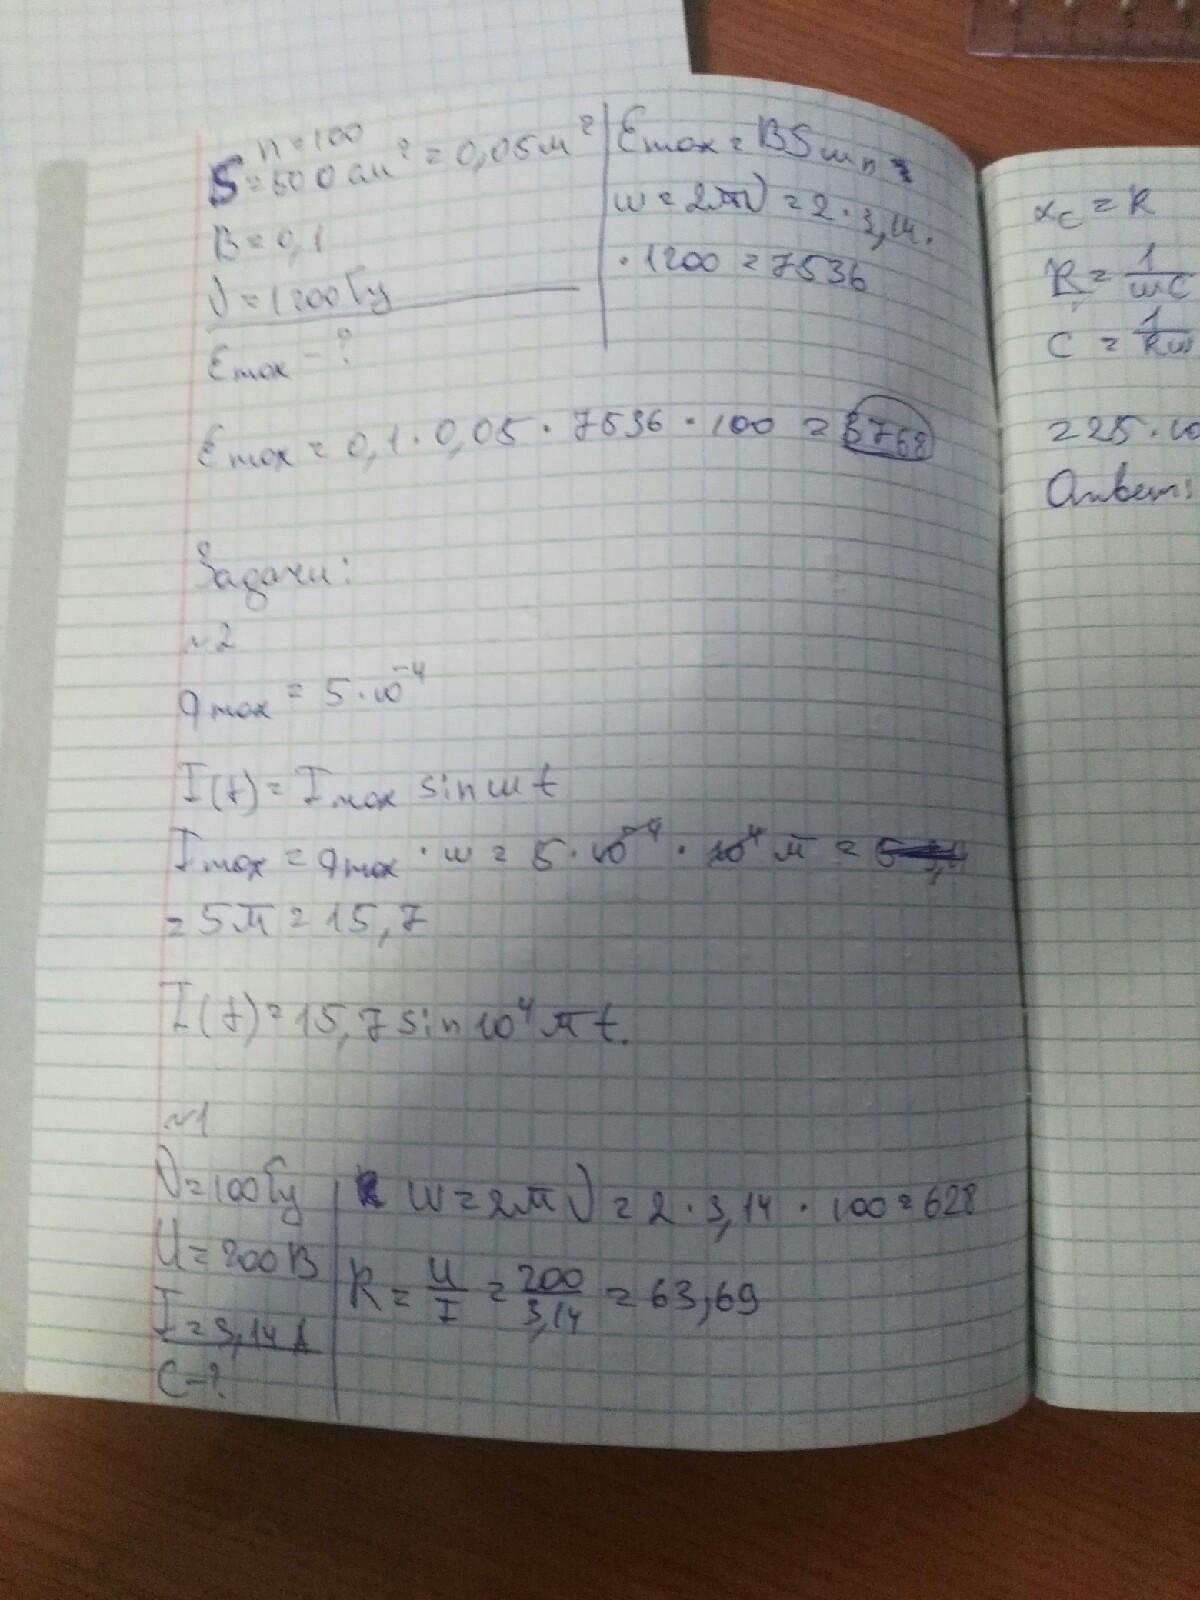 n = 100
S = 500 см² = 0,05 м²
B = 0,1
ν = 1200 Гц
Emax - ?
Emax = BSωn
ω = 2πν = 2 · 3,14 ·
· 1200 = 7536
Emax = 0,1 · 0,05 · 7536 · 100 = 3768
Задачи:
~2
qmax = 5 · 10⁻⁴
I(t) = Imax sin ωt
Imax = qmax · ω = 5 · 10⁻⁴ · 10⁴ π =
= 5π = 15,7
I(t) = 15,7 sin 10⁴ π t.
~1
ν = 100 Гц
U = 200 В
I = 3,14 А
C - ?
ω = 2πν = 2 · 3,14 · 100 = 628
R = U/I = 200/3,14 = 63,69
xc = R
R = 1/ωC
C = 1/Rω
= 25 · 10
Ответ: